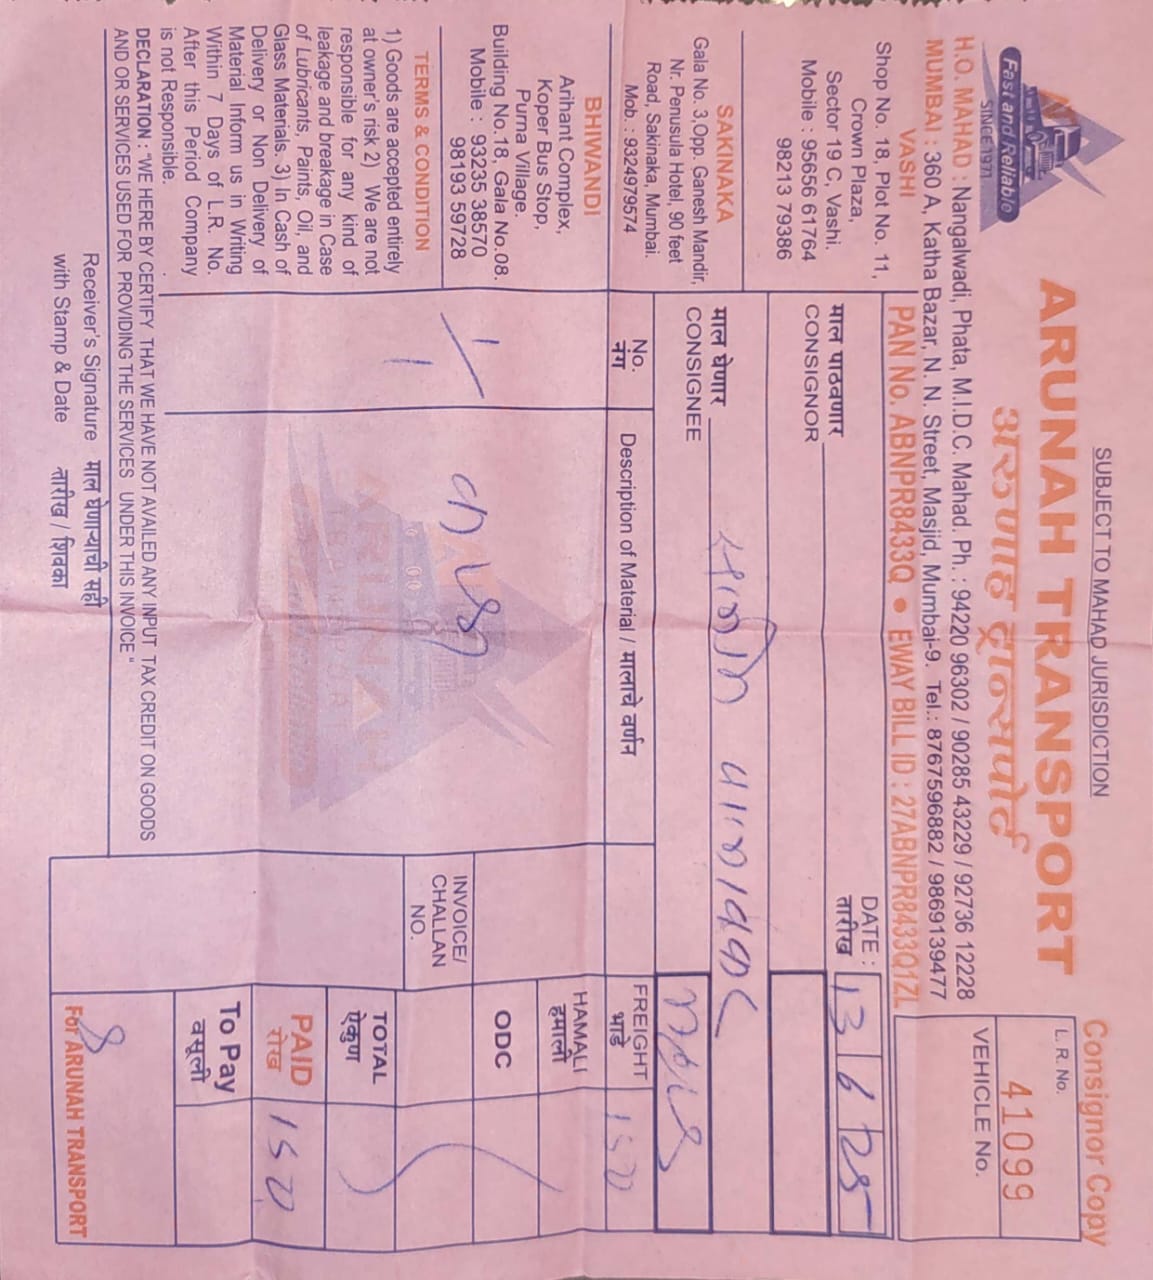 SUBJECT TO MAHAD JURISDICTION
Consignor Copy
Fast and Reliable
SINCE 1971
ARUNAH TRANSPORT
अरुणाह ट्रान्सपोर्ट
L. R. No.
41099
VEHICLE No.
H.O. MAHAD : Nangalwadi, Phata, M.I.D.C. Mahad. Ph. : 94220 96302 / 90285 43229 / 92736 12228
MUMBAI : 360 A, Katha Bazar, N. N. Street, Masjid, Mumbai-9. Tel.: 8767596882 / 9869139477
PAN No. ABNPR8433Q • EWAY BILL ID : 27ABNPR8433Q1ZL
VASHI
Shop No. 18, Plot No. 11,
Crown Plaza,
Sector 19 C, Vashi.
Mobile : 95656 61764
98213 79386
DATE :
तारीख
13 6 25
माल पाठवणार
CONSIGNOR
SAKINAKA
Gala No. 3,Opp. Ganesh Mandir,
Nr. Penusula Hotel, 90 feet
Road, Sakinaka, Mumbai.
Mob.: 9324979574
माल घेणार
CONSIGNEE
BHIWANDI
Arihant Complex,
Koper Bus Stop,
Purna Village.
Building No.18, Gala No.08.
Mobile : 93235 38570
98193 59728
No.
नंग
Description of Material / मालाचे वर्णन
FREIGHT
भाडे
150
HAMALI
हमाली
ODC
INVOICE/
CHALLAN
NO.
TOTAL
ऐकुण
PAID
रोख
150
To Pay
वसूली
TERMS & CONDITION
1) Goods are accepted entirely
at owner's risk 2) We are not
responsible for any kind of
leakage and breakage in Case
of Lubricants, Paints, Oil, and
Glass Materials. 3) In Cash of
Delivery or Non Delivery of
Material Inform us in Writing
Within 7 Days of L.R. No.
After this Period Company
is not Responsible.
DECLARATION : "WE HERE BY CERTIFY THAT WE HAVE NOT AVAILED ANY INPUT TAX CREDIT ON GOODS
AND OR SERVICES USED FOR PROVIDING THE SERVICES UNDER THIS INVOICE"
Receiver's Signature माल घेणाऱ्याची सही
with Stamp & Date तारीख / शिक्का
For ARUNAH TRANSPORT